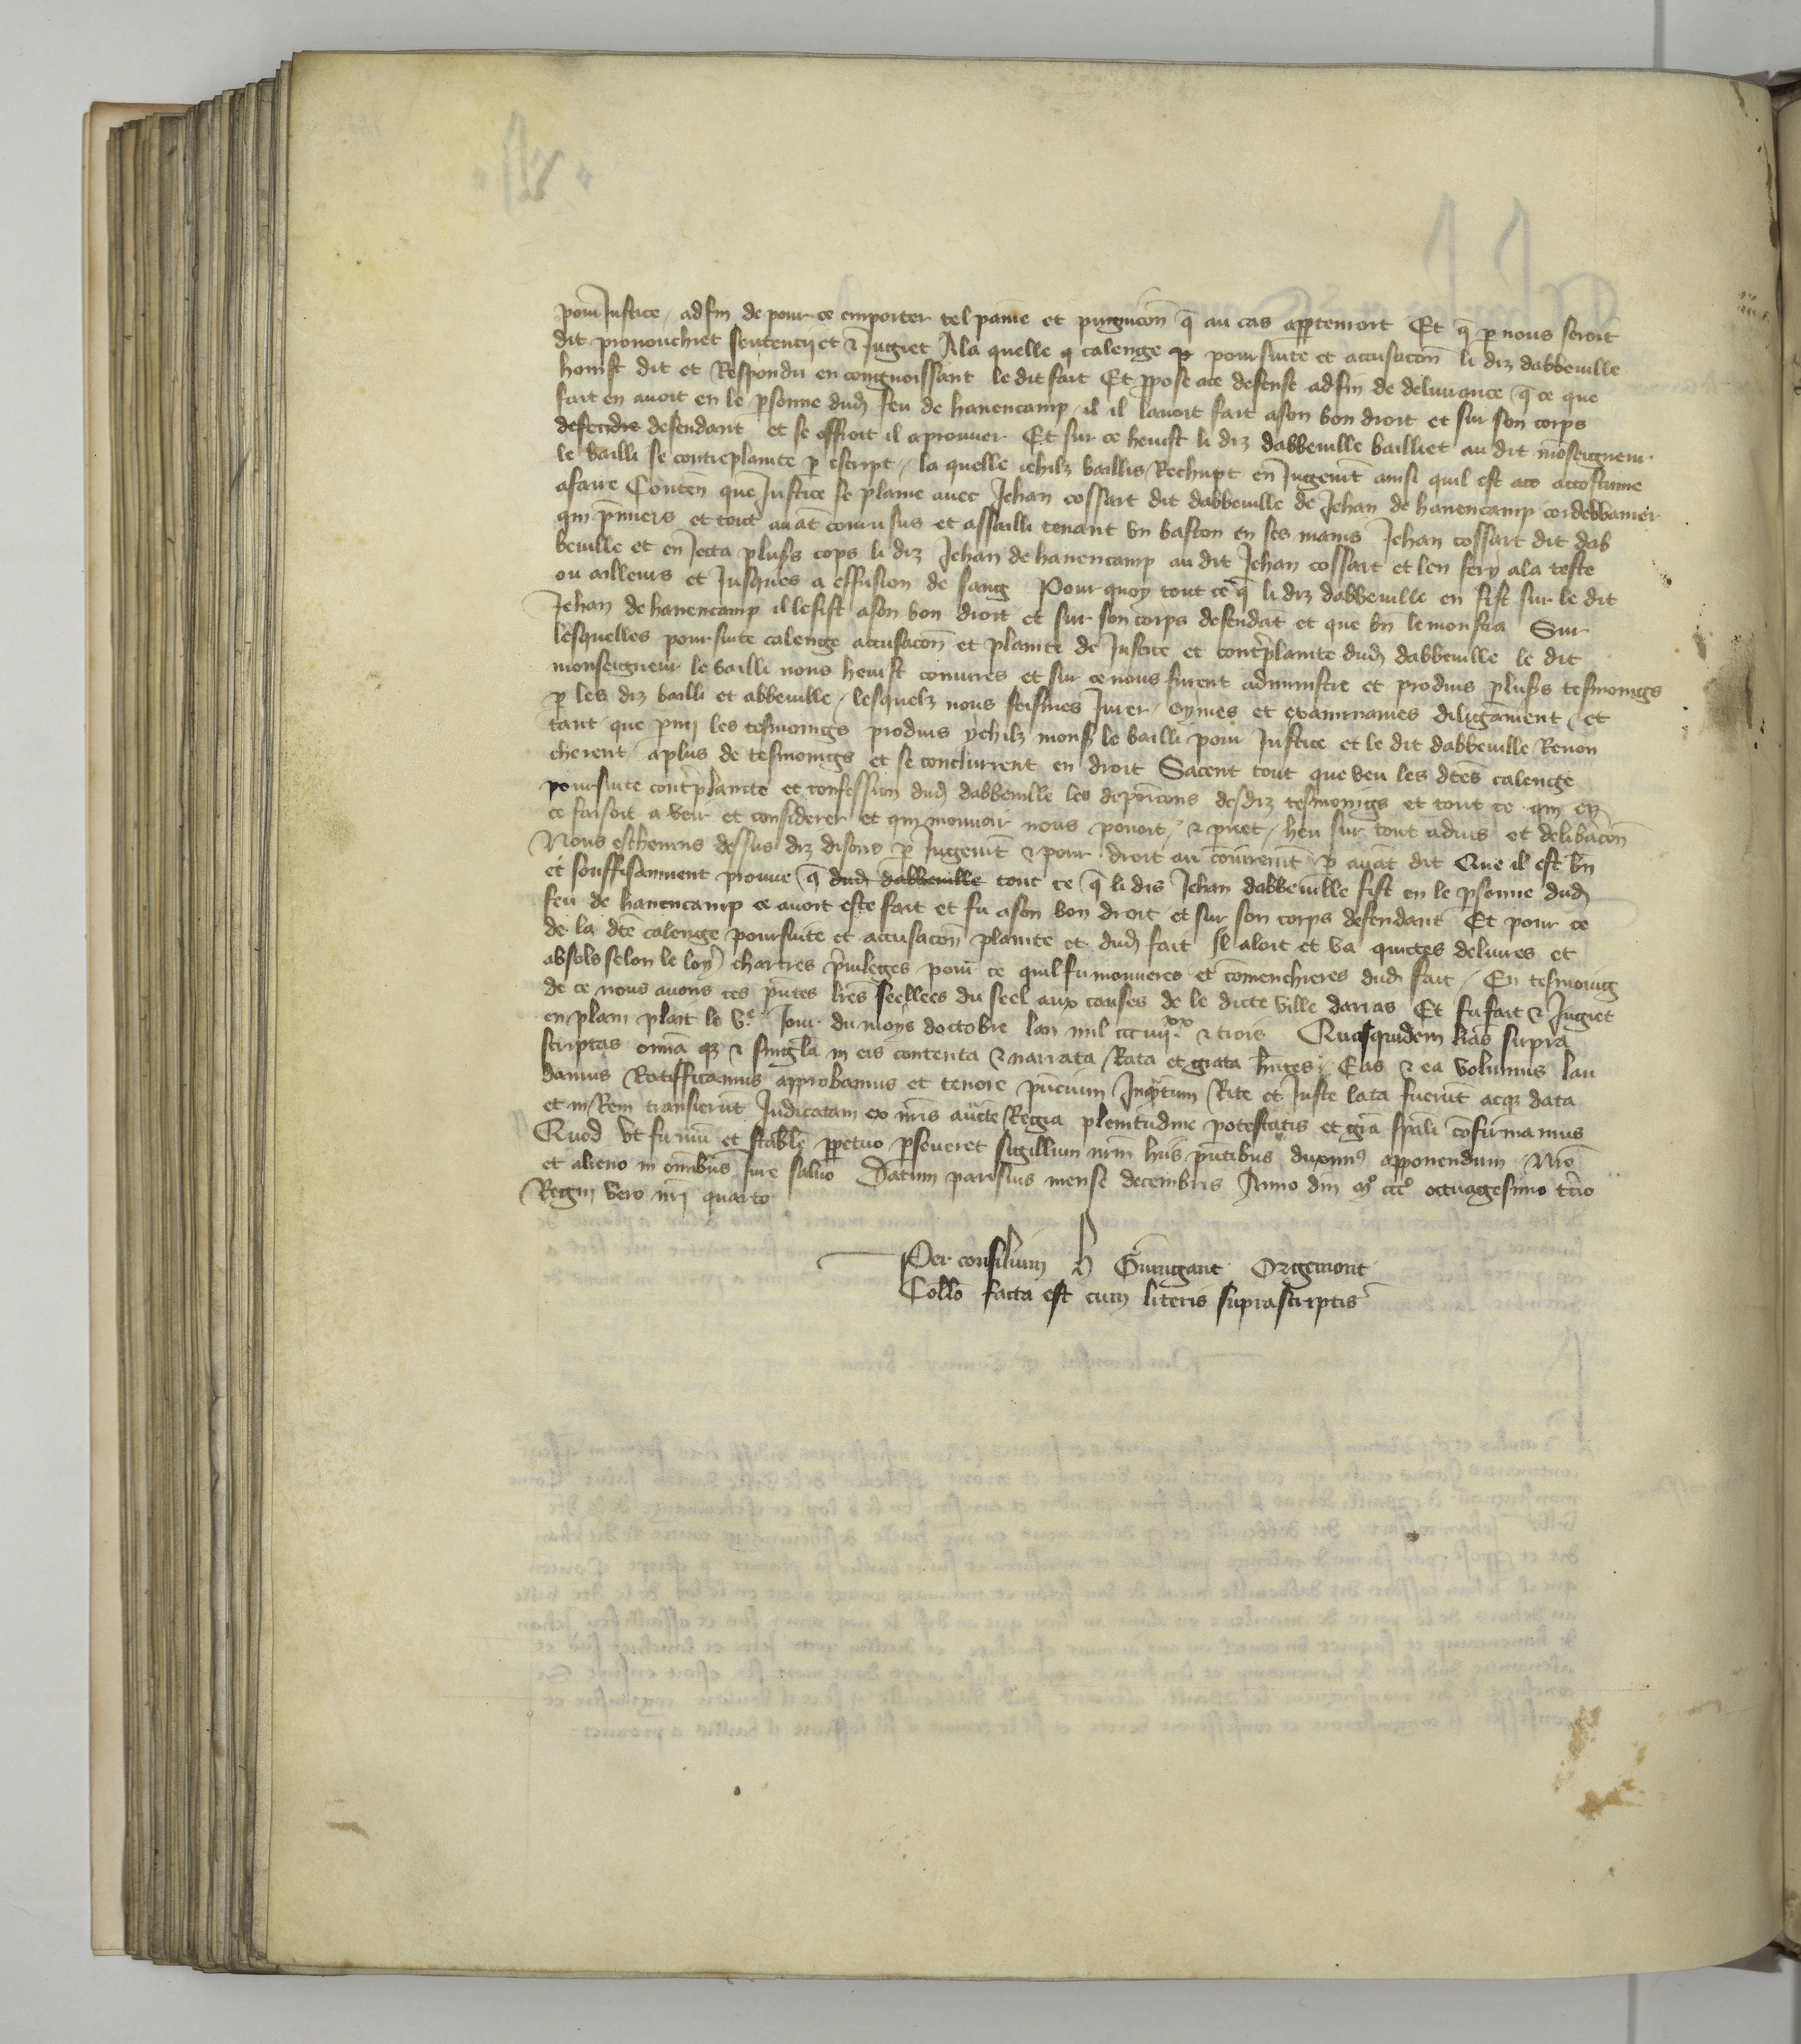 pour Justice / ad fin de pour ce emporter tel paine et pugnicōn q̄ au cas appertenroit Et q̄ p nous seroit
dit prononchiet sentencijet et Jugiet A la quelle calenge poursuite et accusacōn li diz dabbeuille
heuist dit et Respondu en congnoissant le dit fait Et ppose a ce defense ad fin de deliurance q̄ ce que
fait en auoit en le psonne dud feu de hanencamp / il il lauoit fait a son bon droit et sur son corps
defendre defendant et se offroit il a prouuer Et sur ce heuist li diz dabbeuille bailliet au dit mōseigneur
le bailli se contreplainte p escript / la quelle ichilz baillis Rechupt en Jugemēt ainsi quil est acco accostume
a faire Contenā que Justice se plaine auec Jehan cossart dit dabbeuille de Jehan de hanencamp cordewanier
qui pmiers et tout auāt courru sus et assailli tenant vn baston en ses mains Jehan cossart dit dab
beuille et en Jecta plus's cops li diz Jehan de hanencamp au dit Jehan cossart et len fery a la teste
ou ailleurs et Jusques a effusion de sang Pour quoy tout ce q̄ li diz dabbeuille en fist sur le dit
Jehan de hanencamp il le fist a son bon droit et sur son corps defendāt et que bn le monstra Sur
lesquelles poursuite calenge accusacōn et plainte de Justice et contreplainte dud dabbeuille le dit
monseigneur le bailli nous heuist coniures et sur ce nous furent administre et produis plus's tesmoings
p les diz bailli et abbeuille / lesquelz nous feismes Jurer / oymes et examinames diligāment / et
tant que pmi les tesmoings produis ychilz mons le bailli pour Justice et le dit dabbeuille Renon
cherent a plus de tesmoings et se conclurrent en droit Sacent tout que veu les dtēs calenge
poursuite contreplainte et confession dud dabbeuille les deposicōns desdiz tesmoings et tout ce qui en
ce faisoit a veir et considerer et qui mouuoir nous pouoit / heu sur tout aduis et delibacōn
Nous escheuins dessus diz disons p Jugemēt & pour droit au coniuremēt p auāt dit Que il est bn
et souffisanment prouue q̄ dud dabbeuille tout ce q̄ li dis Jehan dabbeuille fist en le psonne dud
feu de hanencamp ce auoit este fait et fu a son bon droit et sur son corps defendant Et pour ce
de la dtē calenge poursuite et accusacōn plainte et dud fait Il aloit et va quictes deliures et
absols selon le loy chartres priuileges pour ce quil fu mouueres et cōmenchieres dud fait / En tesmoing
de ce nous auons ces pntes lrēs seellees du seel aux causes de le dicte ville darras Et fu fait & Jugiet
en plain plait le v.e Jour du moys doctobre lan mil ccc iiij.xx & trois Quasquidem lrās supra
scriptas omīa qz & singlā in eis contenta & narrata Rata et grata hntēs / Eas & ea volumus lau
damus Ratifficamus approbamus et tenore pnciūm Inquātum Rite et Juste lata fuerūt acqz data
et in Rem transierūt Judicatam ex nrīs aucte Regia plenitudine potestatis et grā spāli cōfirmamus
Quod vt firmū et stabile ppetuo pseueret sigillium nrm hiis pntibus duximus apponendum Nrō
et alieno in omībus Jure saluo Datum parisius mense decembris Anno dnī mº cccº octuagesimo tcio
Regnj vero nrī quarto
Per consilium h Guingant Orgemont
Collō facta est cum literis suprascriptis